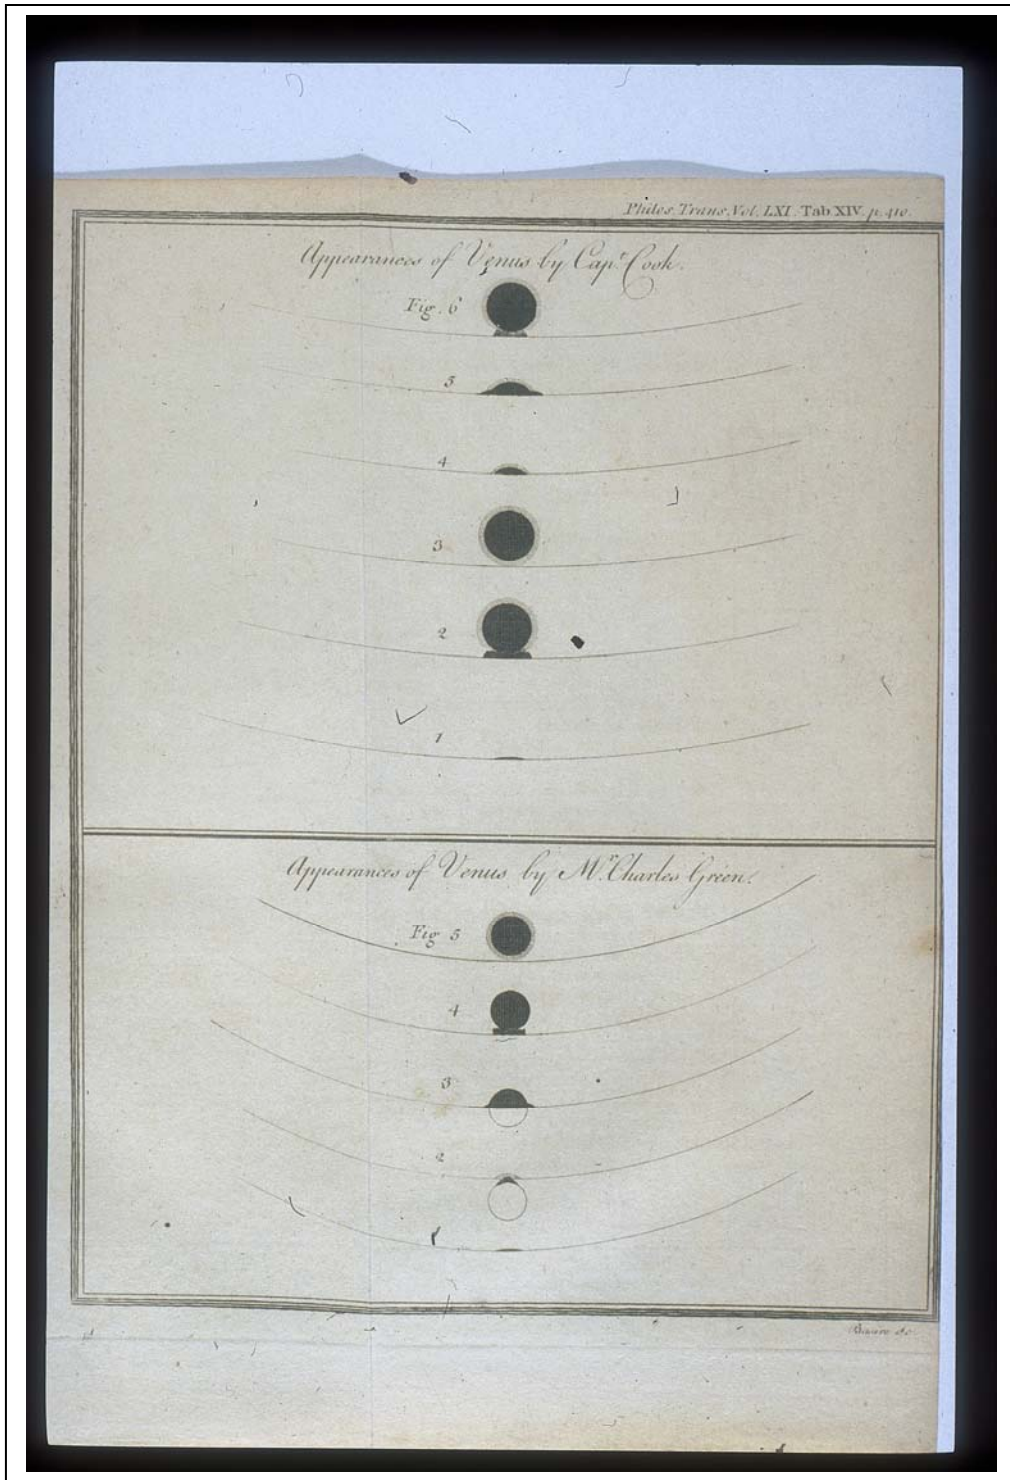 Philos. Trans. Vol. LXI. Tab XIV. p. 410.
Appearances of Venus by Capt. Cook.
Fig. 6
5
4
3
2
1
Appearances of Venus by Mr. Charles Green.
Fig 5
4
3
2
1